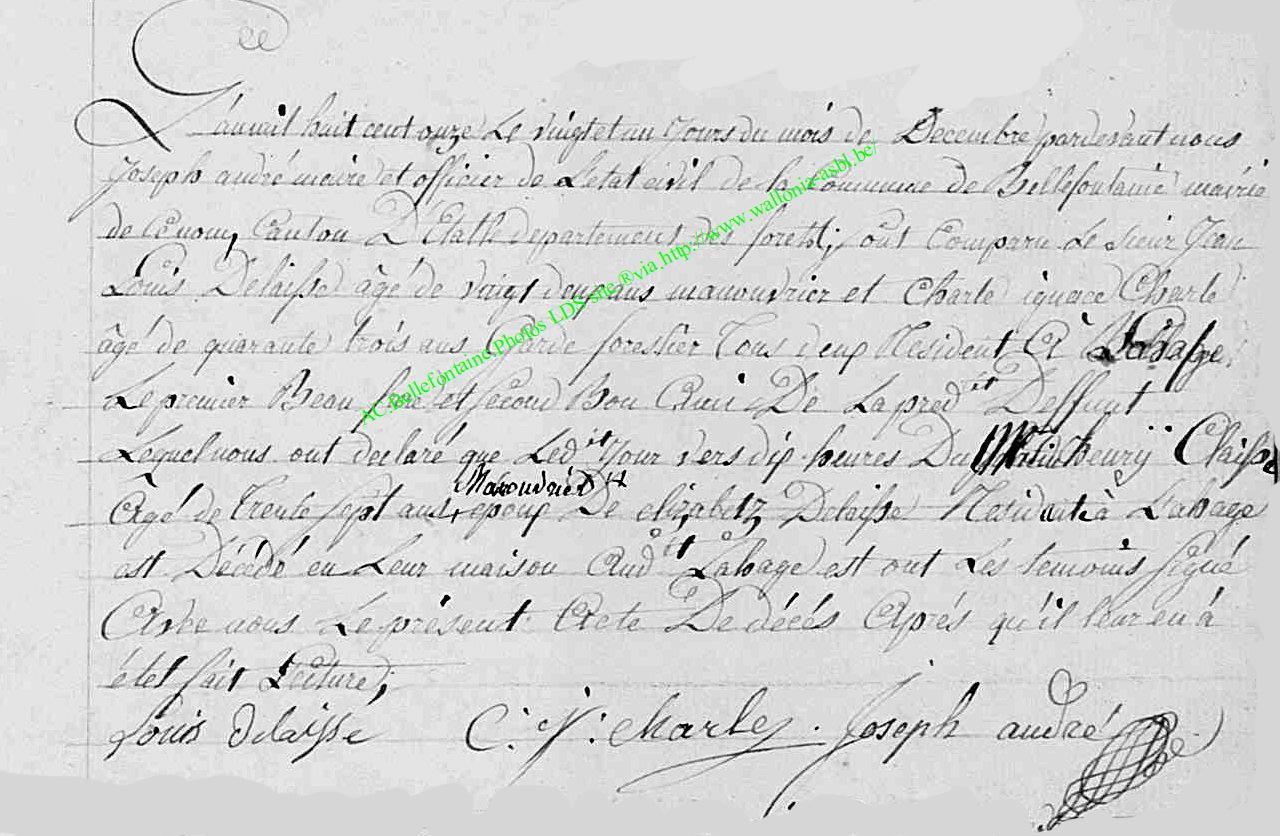 L'an mil huit cent onze Le vingt et un Jours du mois de Decembre pardevant nous
Joseph andré maire et officier de L'etat civil de la commune de Bellefontaine mairie
de ce nom, Canton D'Etalle departement des forets; ont Comparu Le sieur Jean
Louis Delaisse âgé de vingt deux ans manouvrier et Charle ignace Charle
âgé de quarante trois ans Garde forestier Tous deux Resident à Labage.
Le premier Beau frere et second Bon Ami De La pred it Deffunt
Lequel nous ont declaré que Led it Jour vers dix heures Du Matin henrÿ Claisse
Agé de Trente sept ans, epoux De elizabetz Delaisse Resident à Labage
Manouvrier
est Décédé en Leur maison Aud it Labage est ont Les temoins signé
Avec nous Le présent Acte De décés Aprés qu'il leur en à
étet fait Lecture;
Louis delaissé C: J: charlez. Joseph andré
AC.Bellefontaine.Photos LDS-site ®via http://www.wallonia-asbl.be/